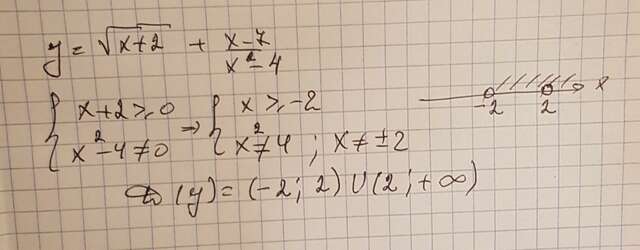 y = √(x+2) + (x-7)/(x²-4)
{ x+2 ⩾ 0 ⇒ { x ⩾ -2
{ x²-4 ≠ 0 { x² ≠ 4 ; x ≠ ±2
-2 2 x
D (y) = (-2; 2) U (2; +∞)